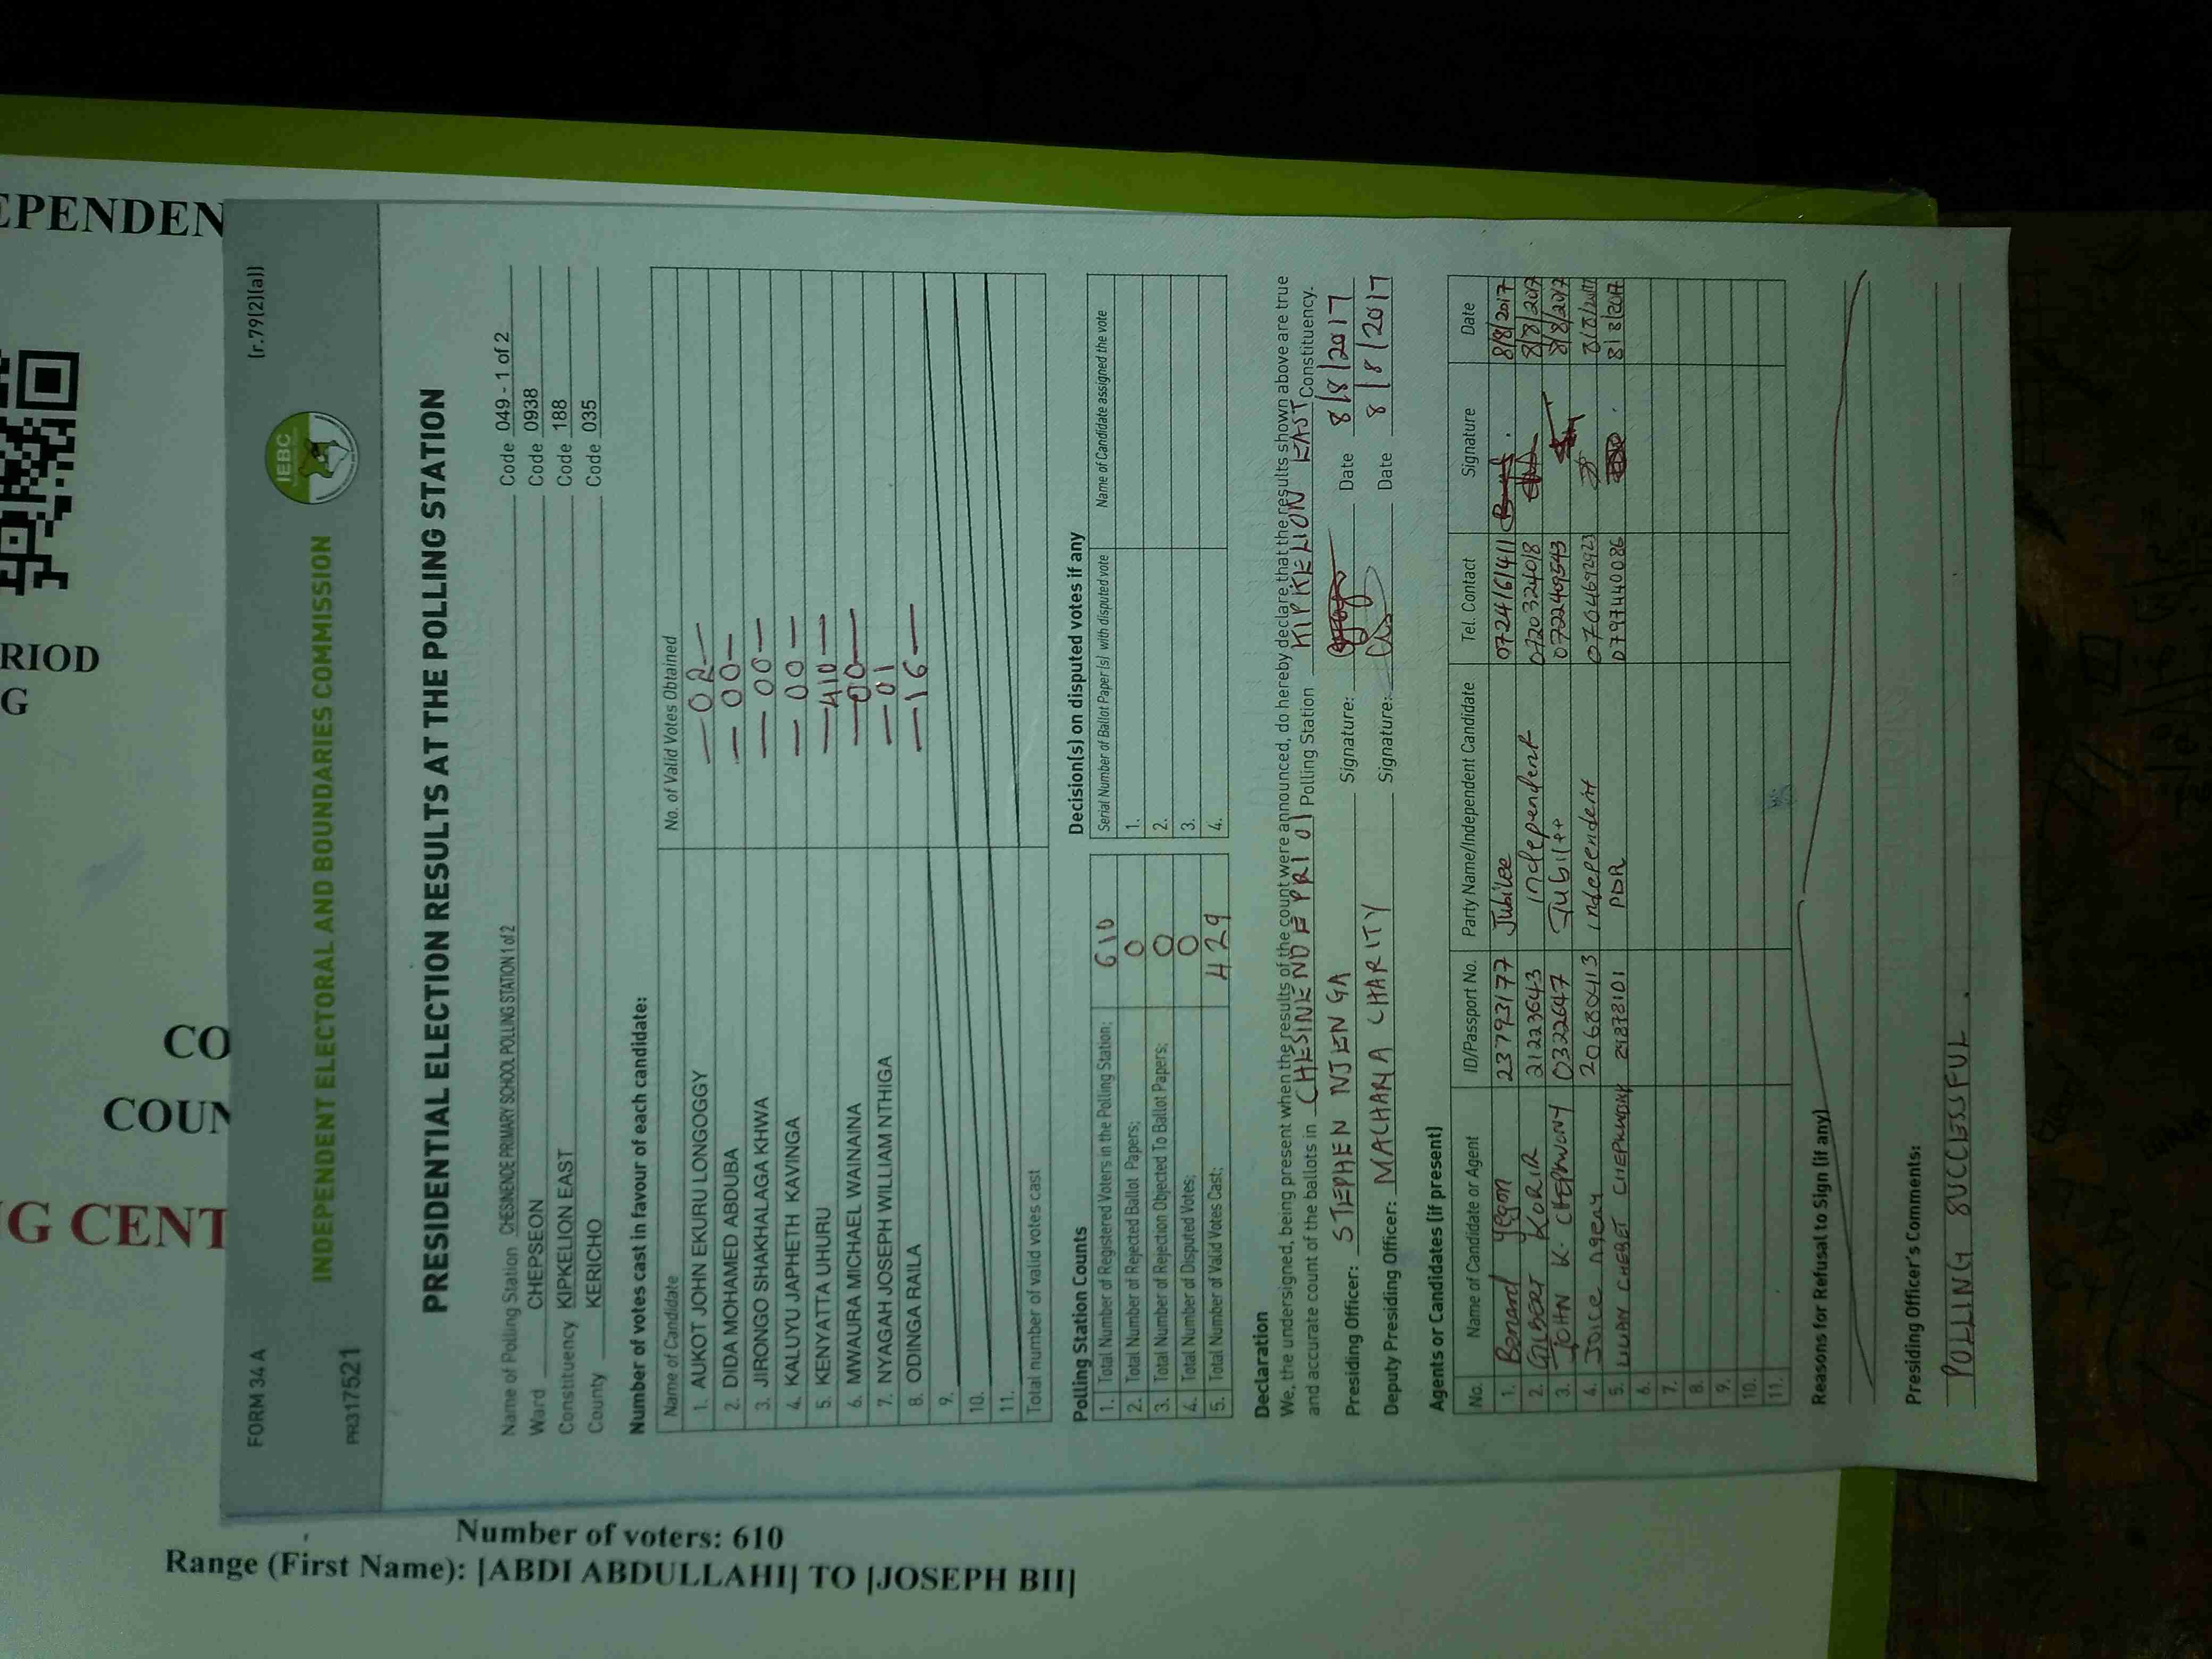 EPENDEN
RIOD
G
CO
COUN
G CENT
Number of voters: 610
Range (First Name): [ABDI ABDULLAHI] TO [JOSEPH BII]
FORM 34 A
(r.79(2)(a))
IEBC
INDEPENDENT ELECTORAL AND BOUNDARIES COMMISSION
PR317521
PRESIDENTIAL ELECTION RESULTS AT THE POLLING STATION
Name of Polling Station CHESINENDE PRIMARY SCHOOL POLLING STATION 1 of 2 Code 049 - 1 of 2
Ward CHEPSEON Code 0938
Constituency KIPKELION EAST Code 188
County KERICHO Code 035
Number of votes cast in favour of each candidate:
Name of Candidate No. of Valid Votes Obtained
1. AUKOT JOHN EKURU LONGOGGY — 02 —
2. DIDA MOHAMED ABDUBA — 00 —
3. JIRONGO SHAKHALAGA KHWA — 00 —
4. KALUYU JAPHETH KAVINGA — 00 —
5. KENYATTA UHURU — 410 —
6. MWAURA MICHAEL WAINAINA — 00 —
7. NYAGAH JOSEPH WILLIAM NTHIGA — 01
8. ODINGA RAILA — 16 —
9.
10.
11.
Total number of valid votes cast
Polling Station Counts
1. Total Number of Registered Voters in the Polling Station: 610
2. Total Number of Rejected Ballot Papers: 0
3. Total Number of Rejection Objected To Ballot Papers: 0
4. Total Number of Disputed Votes: 0
5. Total Number of Valid Votes Cast: 429
Decision(s) on disputed votes if any
Serial Number of Ballot Paper(s) with disputed vote Name of Candidate assigned the vote
1.
2.
3.
4.
Declaration
We, the undersigned, being present when the results of the count were announced, do hereby declare that the results shown above are true
and accurate count of the ballots in CHESINENDE PRI 01 Polling Station KIPKELION EAST Constituency.
Presiding Officer: STEPHEN NJENGA Signature: Date 8/8/2017
Deputy Presiding Officer: MACHARIA CHARITY Signature: Date 8/8/2017
Agents or Candidates (if present)
No. Name of Candidate or Agent ID/Passport No. Party Name/Independent Candidate Tel. Contact Signature Date
1. Benard 23793177 Jubilee 0724161411 8/8/2017
2. GILBERT KORIR 21223643 independent 0720324018 8/8/2017
3. JOHN K. CHEPKWONY 0322647 0722409543 8/8/2017
4. JOICE 20680413 independent 0704692923 8/8/2017
5. CHEBET 29878101 PDR 0797440086 8/8/2017
6.
7.
8.
9.
10.
11.
Reasons for Refusal to Sign (if any)
Presiding Officer's Comments:
POLLING SUCCESSFUL.